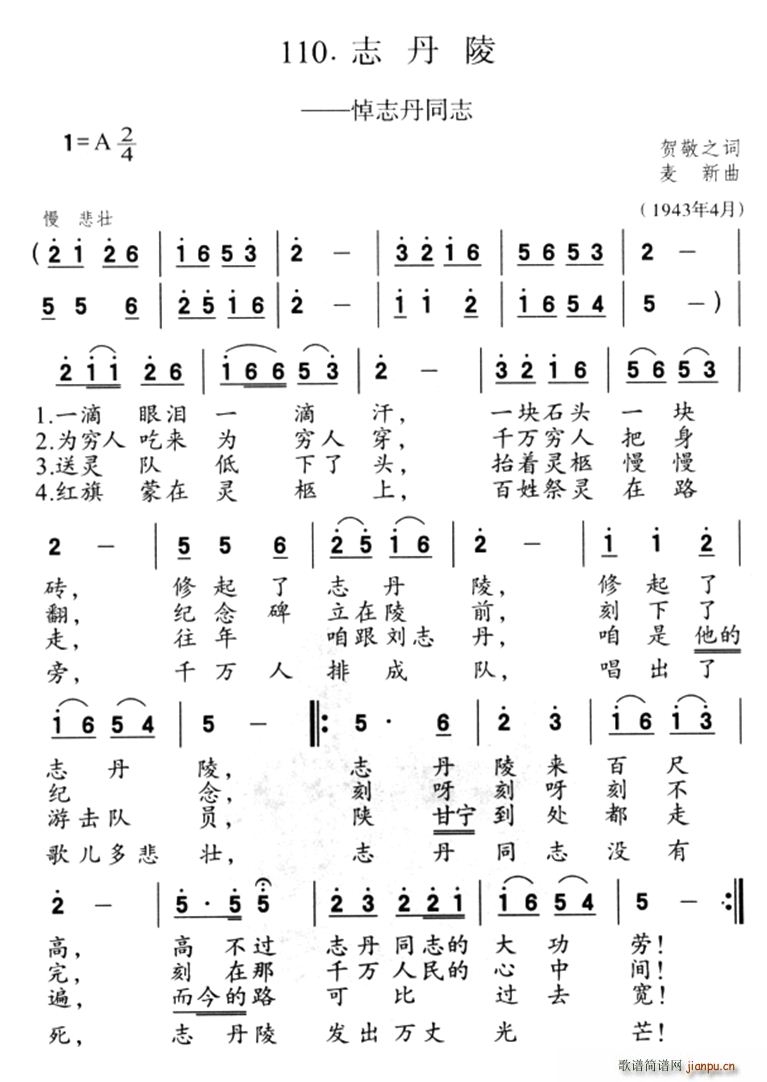 110. 志 丹 陵
——悼志丹同志
1=A 2/4
贺敬之词
麦 新曲
慢 悲壮
(1943年4月)
( 2 1 2 6 | 1 6 5 3 | 2 － | 3 2 1 6 | 5 6 5 3 | 2 － |
5 5 6 | 2 5 1 6 | 2 － | 1 1 2 | 1 6 5 4 | 5 － ) |
2 1 1 2 6 | 1 6 6 5 3 | 2 － | 3 2 1 6 | 5 6 5 3 |
1.一滴 眼泪 一 滴 汗， 一块石头 一 块
2.为穷人 吃来 为 穷人 穿， 千万穷人 把 身
3.送灵 队 低 下了 头， 抬着灵柩 慢 慢
4.红旗 蒙在 灵 柩 上， 百姓祭灵 在 路
2 － | 5 5 6 | 2 5 1 6 | 2 － | 1 1 2 |
砖， 修 起 了 志 丹 陵， 修 起 了
翻， 纪 念 碑 立在陵 前， 刻 下 了
走， 往 年 咱跟刘志 丹， 咱 是 他的
旁， 千 万 人 排 成 队， 唱 出 了
1 6 5 4 | 5 － |: 5 · 6 | 2 3 | 5 6 1 3 |
志 丹 陵， 志 丹 陵 来 百 尺
纪 念， 刻 呀 刻 呀 刻 不
游击队 员， 陕 甘宁 到 处 都 走
歌儿多悲 壮， 志 丹 同 志 没 有
2 － | 5 · 5 5 | 2 3 2 2 1 | 1 6 5 4 | 5 － :|
高， 高 不过 志丹同志的 大 功 劳！
完， 刻 在那 千万人民的 心 中 间！
遍， 而今的路 可 比 过 去 宽！
死， 志 丹陵 发出万丈 光 芒！
歌谱简谱网 jianpu.cn